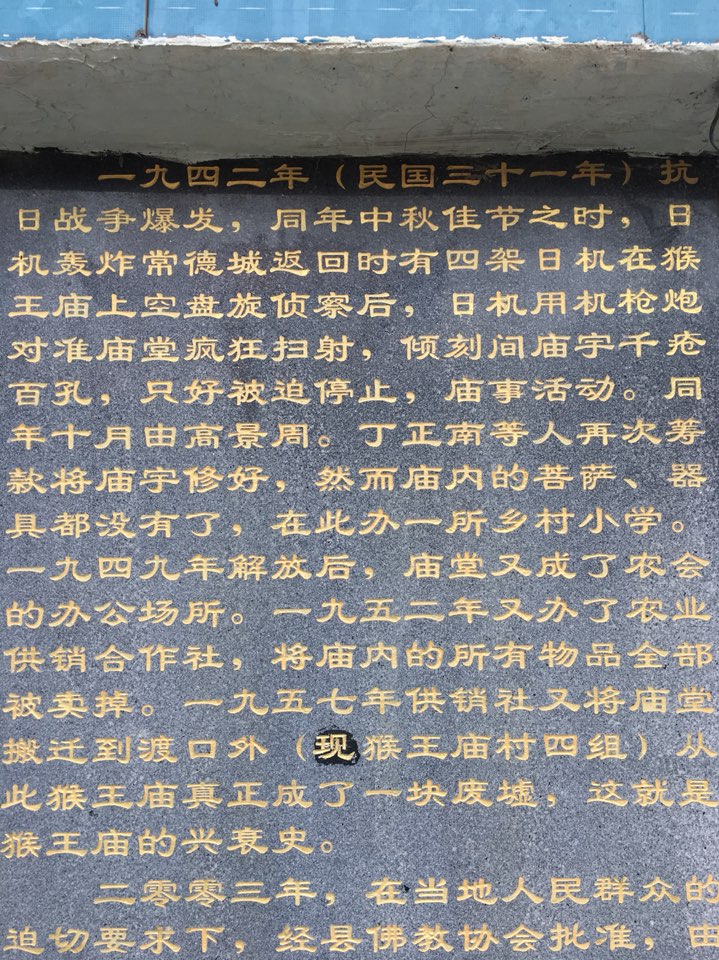 一九四二年（民国三十一年）抗
日战争爆发，同年中秋佳节之时，日
机轰炸常德城返回时有四架日机在猴
王庙上空盘旋侦察后，日机用机枪炮
对准庙堂疯狂扫射，倾刻间庙宇千疮
百孔，只好被迫停止，庙事活动。同
年十月由高景周。丁正南等人再次筹
款将庙宇修好，然而庙内的菩萨、器
具都没有了，在此办一所乡村小学。
一九四九年解放后，庙堂又成了农会
的办公场所。一九五二年又办了农业
供销合作社，将庙内的所有物品全部
被卖掉。一九五七年供销社又将庙堂
搬迁到渡口外（现猴王庙村四组）从
此猴王庙真正成了一块废墟，这就是
猴王庙的兴衰史。
二零零三年，在当地人民群众的
迫切要求下，经县佛教协会批准，由